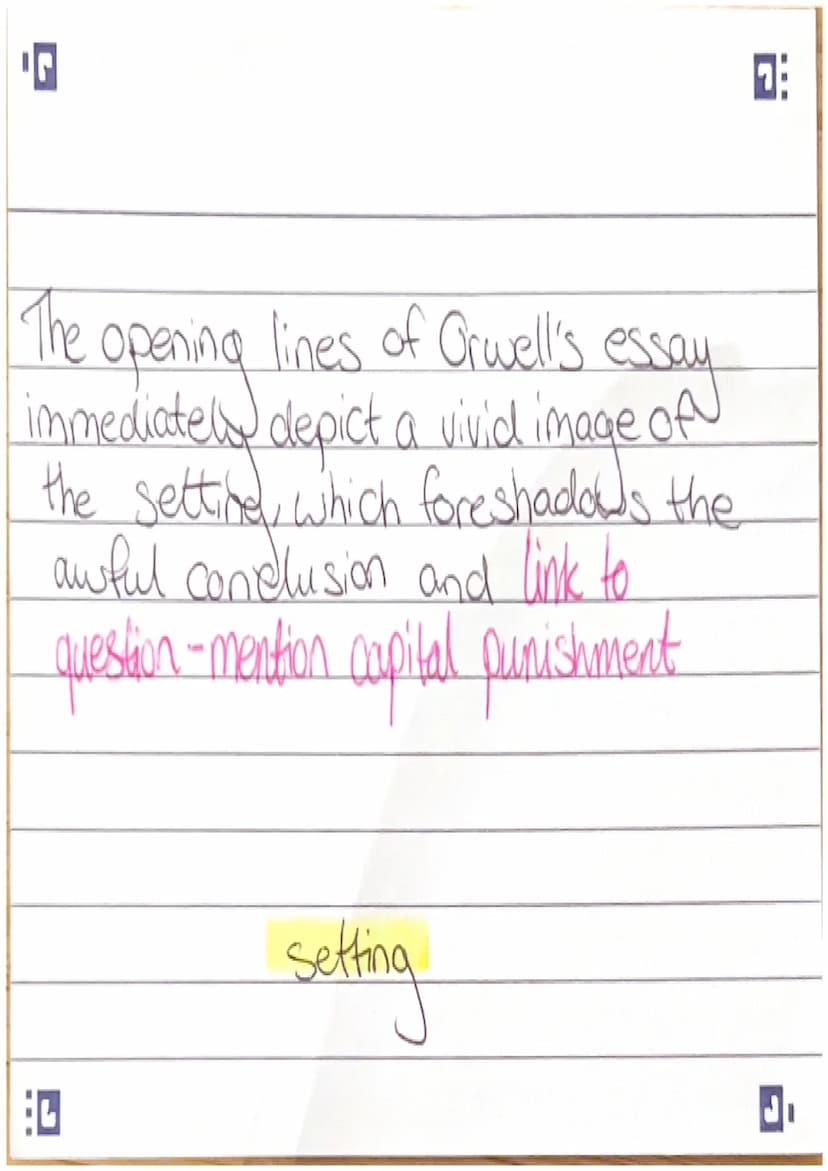 The opening lines of Orwell's essay
immediately depict a vivid image of
the setting, which foreshadows the
awful conclusion and link to
question-mention capital punishment
setting